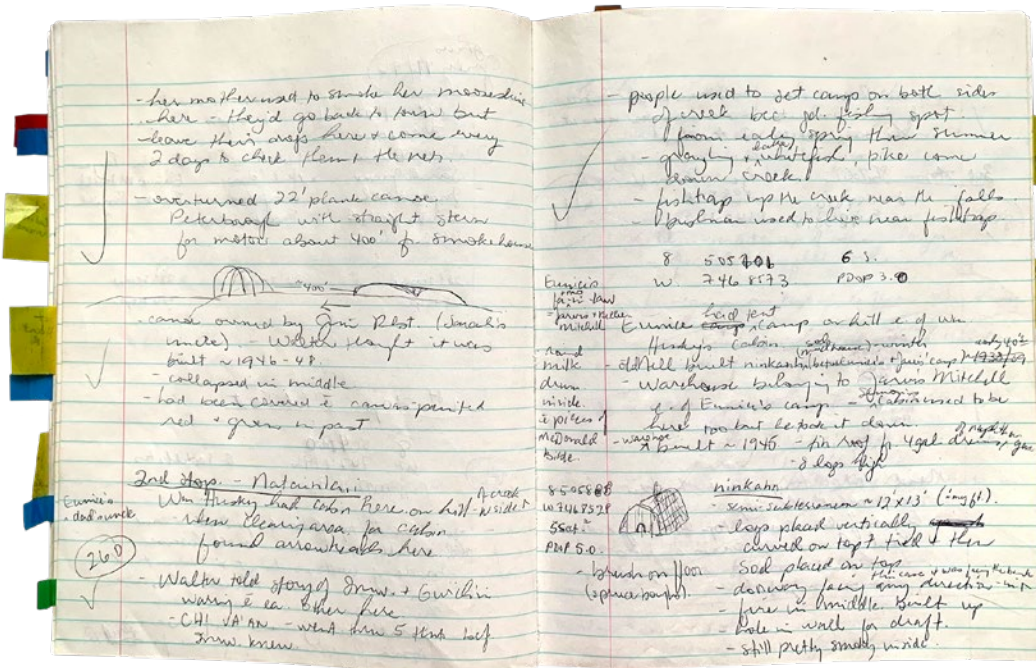 - her mother used to smoke her mooseskins
here - they'd go back to town but
leave their dogs here & come every
2 days to check them & the nets.
- overturned 22' plank canoe
Peterborough with straight stern
for motor about 400' f. smokehouse
~400'
- canoe owned by Jim Rbst.
uncle) - Walter thought it was
built ~ 1946-48.
- collapsed in middle
- had been covered c̄ canvas painted
red & green in past
2nd stop -
Eunice's
dad's uncle
Wm Husky had cabin here, on hill - W side of creek
- when clearing area for cabin
found arrowheads here
260
- Walter told story of Inuv. & Gwich'in
warring c̄ ea. other here
- CHI VA'AN - went thru 5 tents bef
Inuv. knew.
- people used to set camp on both sides
of creek bec gd. fishing spot.
from early spring thru summer
- grayling & whitefish, pike come
down creek.
- fishtrap up the creek near the falls
- bushman used to live near fishtrap
8 505 6 S.
W. 746 8573 PDOP 3.0
Eunice's
- Jarvis &
Mitchell
Eunice had tent camp on hill e of Wm
Husky's Cabin
- old Neil built ninkanh before Eunice's & Jarvis' camp early 40's
- found
milk
drum
inside
c̄ pieces of
McDonald
Bible.
- warehouse belonging to Jarvis Mitchell
e. of Eunice's camp - cabin used to be
here too but he took it down.
- warehouse built ~ 1945 - tin roof fr 4 gal drums of naptha gas
- 8 logs high
8 5058
W 7468528
5 Sat.
PDOP 5.0
ninkanh
- semi-subterranean ~ 12'x13'
- logs placed vertically
curved on top & tied & then
sod placed on top
- brush on floor
(spruce boughs).
- doorway facing any direction
- fire in middle. Built up
- hole in wall for draft.
- still pretty smoky inside.